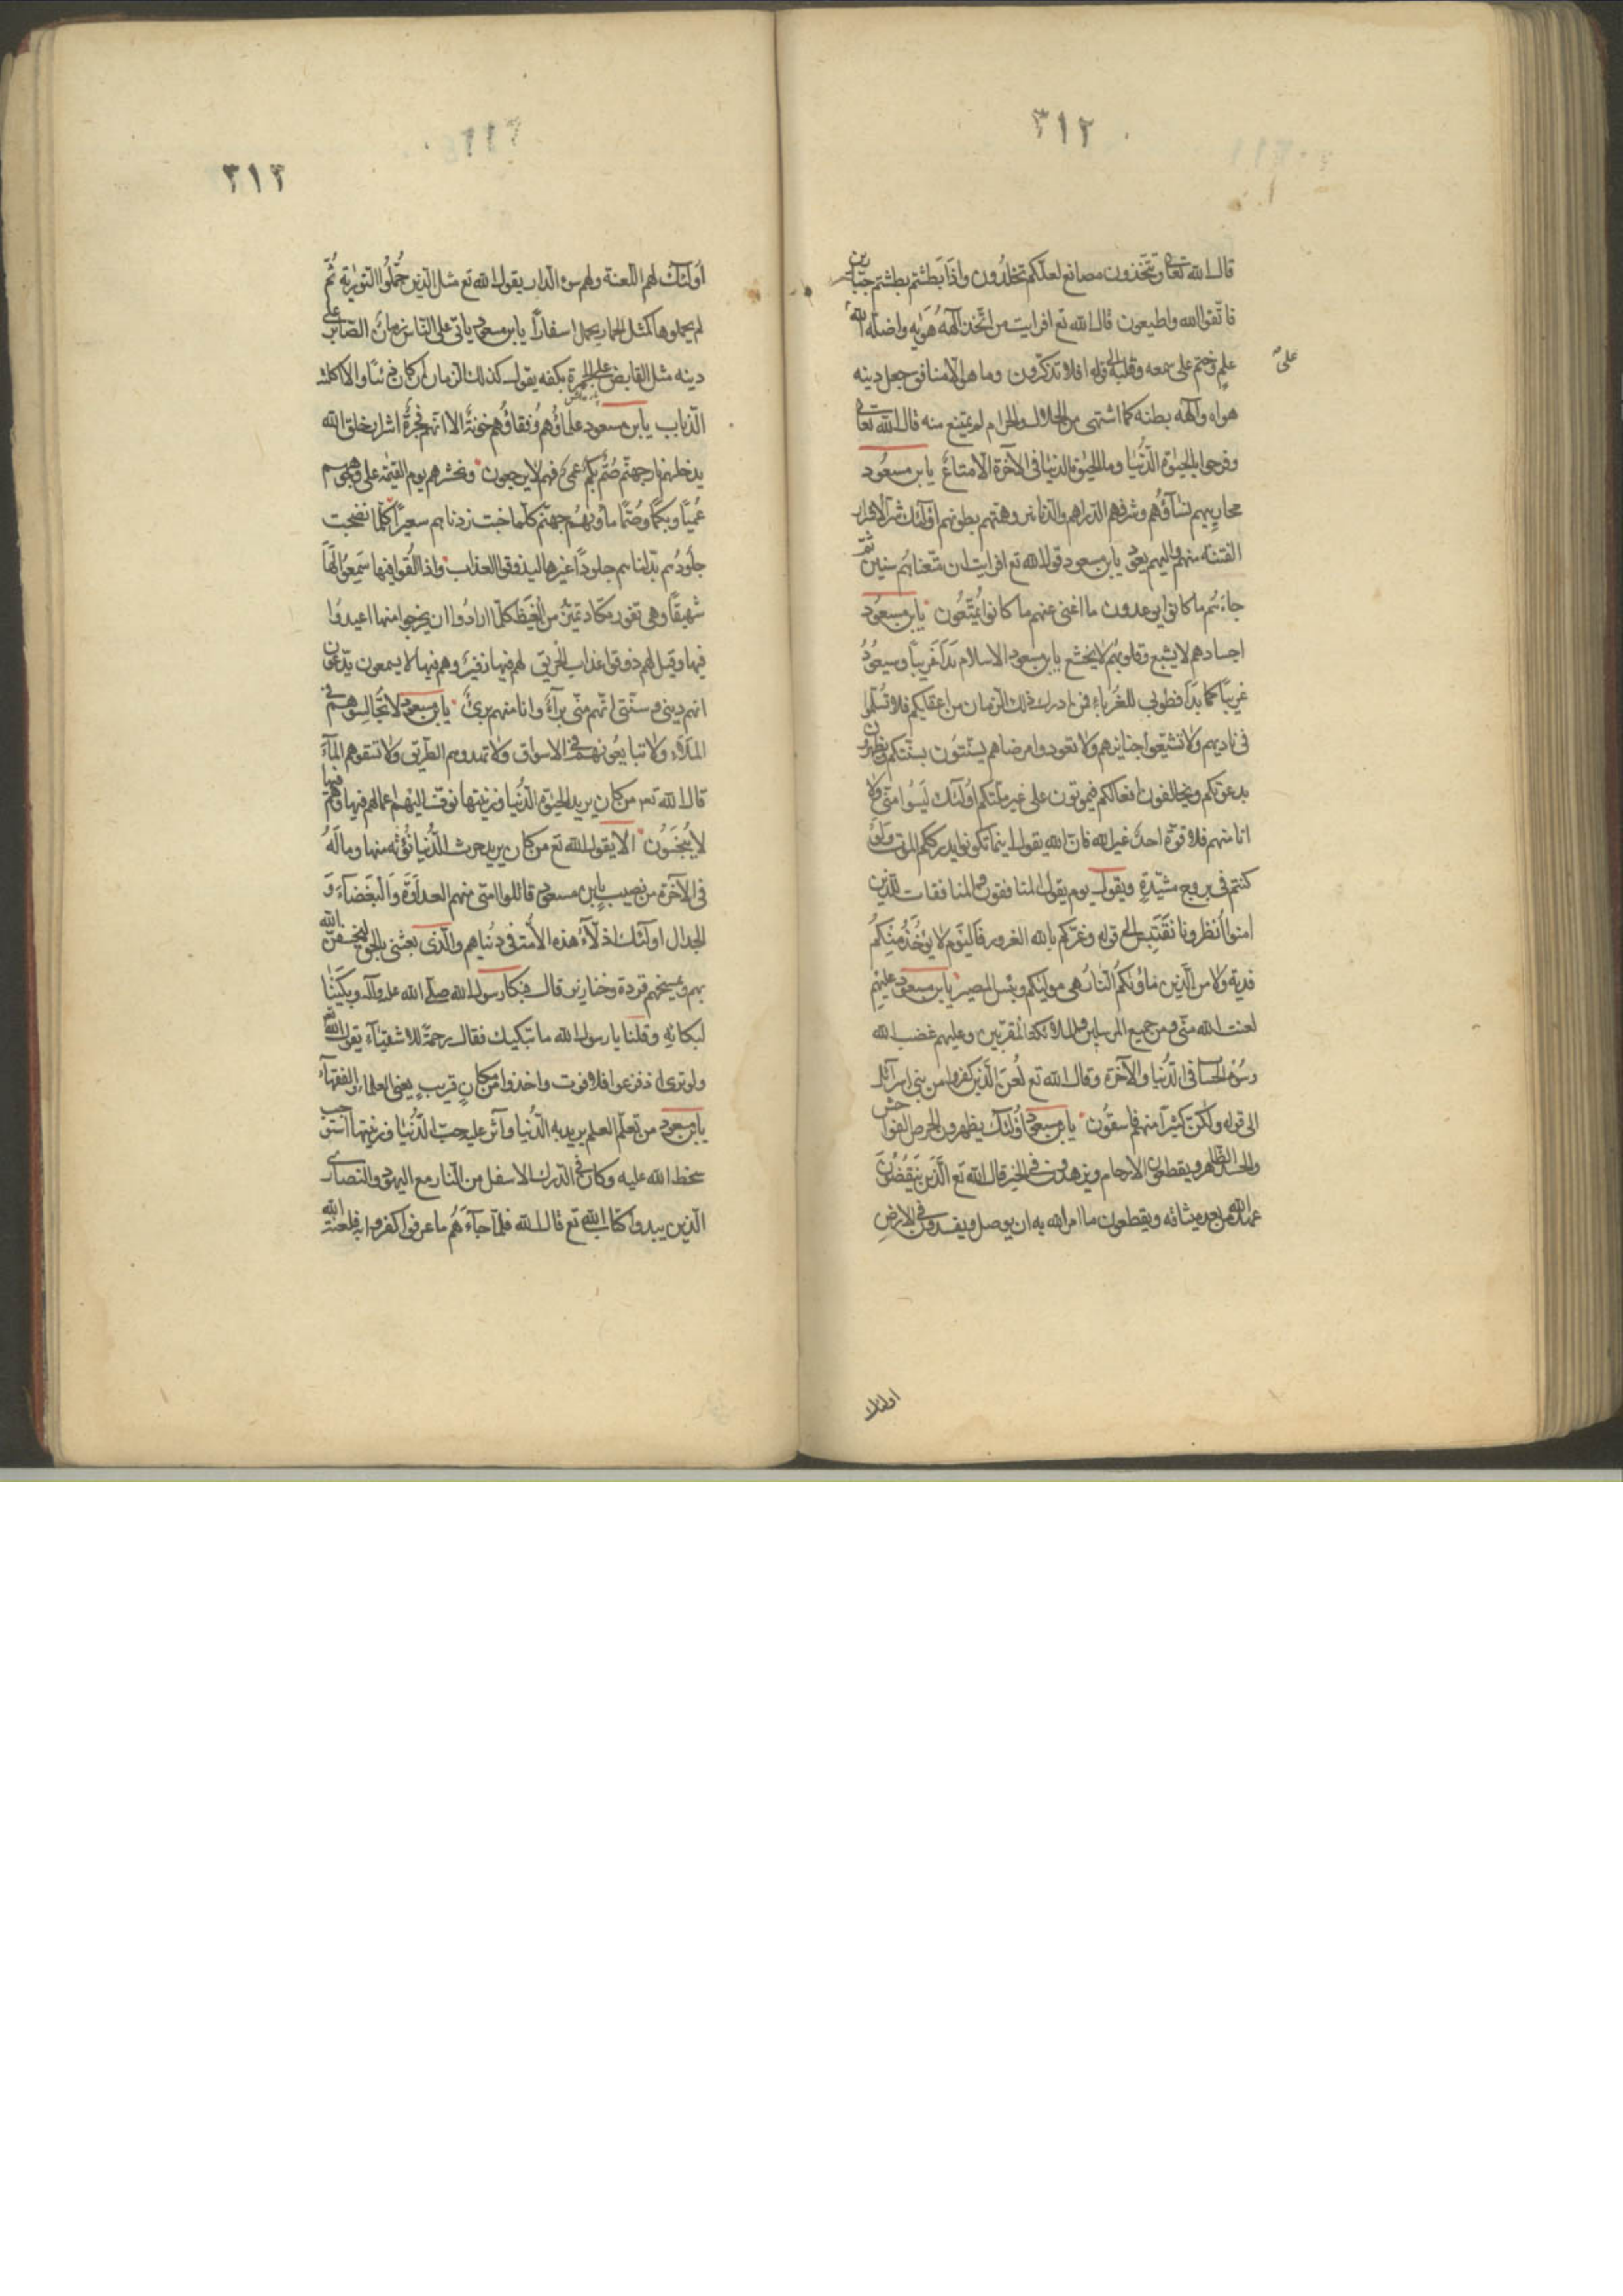 ٣١٢
قال الله تعالى وتتخذون مصانع لعلكم تخلدون واذا بطشتم بطشتم جبارين
فاتقوا الله واطيعون قال الله تع افرايت من اتخذ آلهه هويه واضله الله
على علم وختم على سمعه وقلبه الى قوله افلا تذكرون وما هو الا منافق جعل دينه
هواه وآلهه بطنه كما اشتهى من الحلال والحرام لم يمتنع منه قال الله تعالى
وفرحوا بالحيوة الدنيا وما الحيوة الدنيا فى الآخرة الا متاع يابن مسعود
محاريبهم نساؤهم وشرفهم الدراهم والدنانير وهمتهم بطونهم اولئك شر الاشرار
الفتنة منهم واليهم يعود يابن مسعود قول الله تع افرايت ان متعناهم سنين ثم
جاءهم ما كانوا يوعدون ما اغنى عنهم ما كانوا يمتعون يابن مسعود
اجسادهم لا يشبع وقلوبهم لا يخشع يابن مسعود الاسلام بدا غريبا وسيعود
غريبا كما بدا فطوبى للغرباء فمن ادرك ذلك الزمان من اعقابكم فلا تسلموا
فى ناديهم ولا تشيعوا جنايزهم ولا تعودوا مرضاهم يستنون بسنتكم ويظهرون
بدعوتكم ويخالفون افعالكم فيموتون على غير ملتكم اولئك ليسوا منى ولا
انا منهم فلا قوة احد غير الله فان الله يقول اينما تكونوا يدرككم الموت ولو
كنتم فى بروج مشيدة ويقول يوم يقول المنافقون والمنافقات للذين
امنوا انظرونا نقتبس الى قوله وغركم بالله الغرور فاليوم لا يؤخذ منكم
فدية ولا من الذين ماؤيكم النار هى موليكم وبئس المصير يابن مسعود عليهم
لعنت الله منى ومن جميع المرسلين والملائكة المقربين وعليهم غضب الله
وسوء الحساب فى الدنيا والآخرة وقال الله تع لعن الذين كفروا من بنى اسرآئيل
الى قوله ولكن كثيرا منهم فاسقون يابن مسعود اولئك يظهرون الحرص الفواحش
والحسد الظاهر ويقطعون الارحام ويزهدون فى الخير قال الله تع الذين ينقضون
عهد الله من بعد ميثاقه ويقطعون ما امر الله به ان يوصل ويفسدون فى الارض
اولئك
٣١٣
اولئك لهم اللعنة ولهم سوء الدار يقول الله تع مثل الذين حملوا التورية ثم
لم يحملوها كمثل الحمار يحمل اسفارا يابن مسعود ياتى على الناس زمان الصابر على
دينه مثل القابض على الجمرة بكفه يقول كذلك الزمان ان كان ذئبا والا اكلته
الذياب يابن مسعود علماؤهم وفقاؤهم خونة الا انهم فجرة اشرار خلق الله
يدخلهم نار جهنم صم بكم عمى فهم لا يرجعون ونحشرهم يوم القيمة على وجوههم
عميا وبكما وصما ماويهم جهنم كلما خبت زدناهم سعيرا كلما نضجت
جلودهم بدلناهم جلودا غيرها ليذوقوا العذاب واذا القوا فيها سمعوا لها
شهيقا وهى تفور تكاد تميز من الغيظ كلما ارادوا ان يخرجوا منها اعيدوا
فيها وقيل لهم ذوقوا عذاب الحريق لهم فيها زفير وهم فيها لا يسمعون يدعون
انهم دينى وسنتى انهم منى برآء وانا منهم برئ يابن مسعود لا تجالسوهم فى
الملاء ولا تبايعوهم فى الاسواق ولا تهدوهم الطريق ولا تسقوهم المآء
قال الله تع من كان يريد الحيوة الدنيا وزينتها نوف اليهم اعمالهم فيها وهم فيها
لا يبخسون الا يقول الله تع من كان يريد حرث الدنيا نؤته منها وما له
فى الآخرة من نصيب يابن مسعود قاتلوا امتى منهم العداوة والبغضاء و
الجدال اولئك اذلاء هذه الأمة فى دنياهم والذى بعثنى بالحق ليخسفن الله
بهم ويمسخهم قردة وخنازير قال فبكا رسول الله صلى الله عليه وآله وبكينا
لبكائه وقلنا يا رسول الله ما تبكيك فقال رحمة للاشقياء يقول الله تع
ولو ترى اذ فزعوا فلا فوت واخذوا من مكان قريب يعنى العلماء والفقهاء
يابن مسعود من تعلم العلم يريد به الدنيا وآثر عليه حب الدنيا وزينتها استوجب
سخط الله عليه وكان فى الدرك الاسفل من النار مع اليهود والنصارى
الذين نبذوا كتاب الله تع قال الله فلما جاءهم ما عرفوا كفروا به فلعنة الله